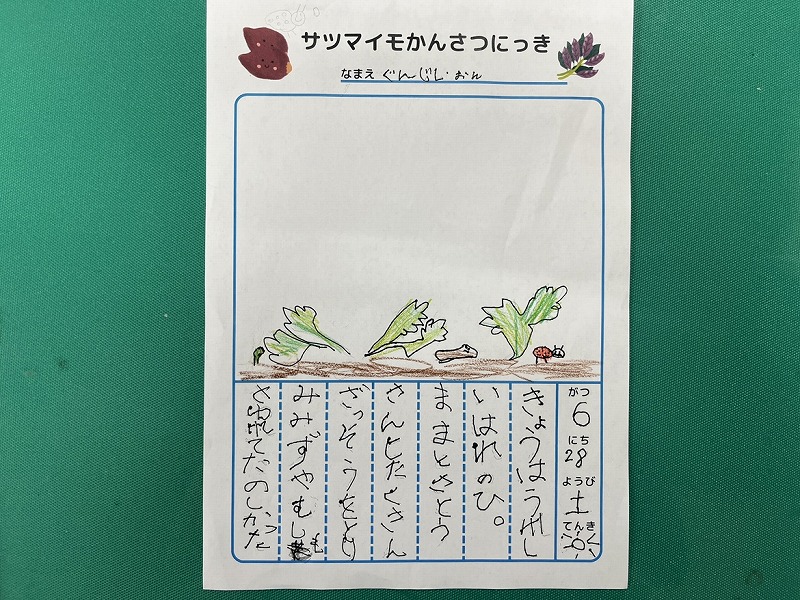 サツマイモかんさつにっき
なまえ ぐんじし おん
がつ
6
にち
28
ようび
土
てんき
きょうはうれし
いはれのひ。
ままとさとう
さんとたくさん
ざっそうをとり
みみずやむしも
さわれてたのしかった